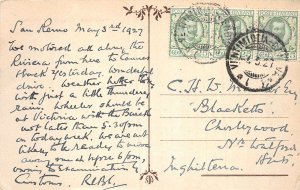 San Remo May 3rd 1927
We motored all along the
Riviera from here to Cannes
& back yesterday, wonderful
drive weather better to
with just a little thunder &
rain, Wheeler should be
at Victoria with the Buick
not later than 5.30pm
to-day week, we are not
likely to be ready to drive
away much before 6pm,
owing to Examination by
Customs. R.C.B.
C. H. W.
Blacketts
Chorleywood
Nr. Watford
Herts.
Inghilterra